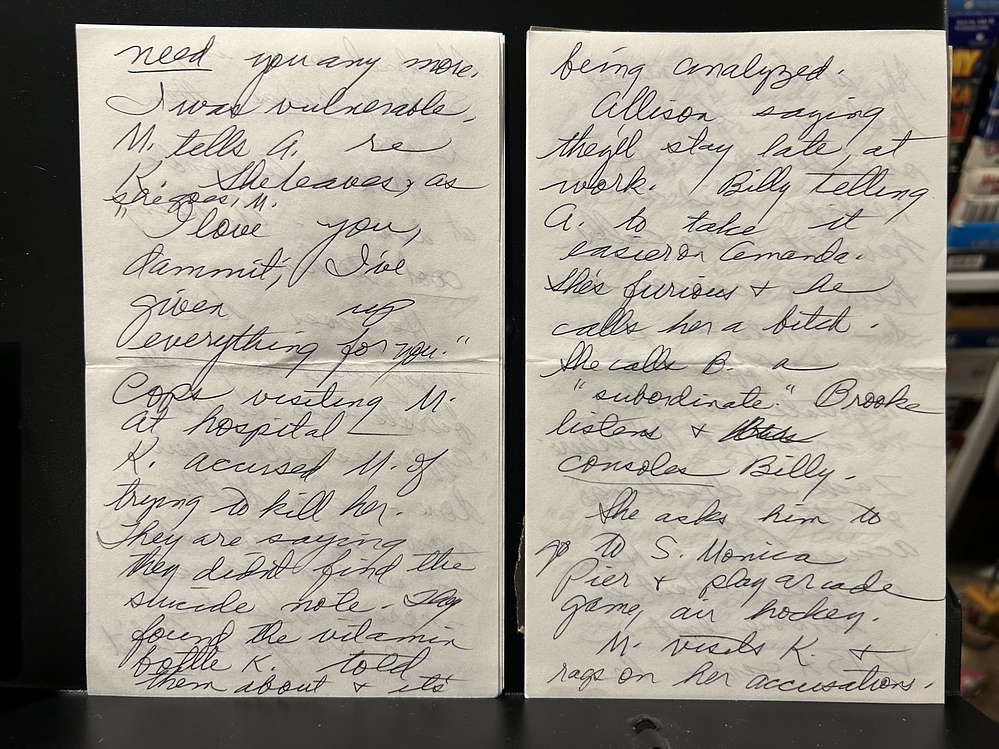 need you any more.
I was vulnerable.
M. tells A. re
K. She leaves, as
she goes, M.
"I love you,
dammit, I've
given up
everything for you."
Cops visiting M.
at hospital
K. accused M. of
trying to kill her.
They are saying
they didn't find the
suicide note. They
found the vitamin
bottle K. told
them about & it's
being analyzed.
Allison saying
they'll stay late, at
work. Billy telling
A. to take it
easier on Amanda.
She's furious & he
calls her a bitch.
She calls B. a
"subordinate." Brooke
listens &
consoles Billy.
She asks him to
go to S. Monica
Pier & play arcade
game, air hockey.
M. visits K. &
rags on her accusations.